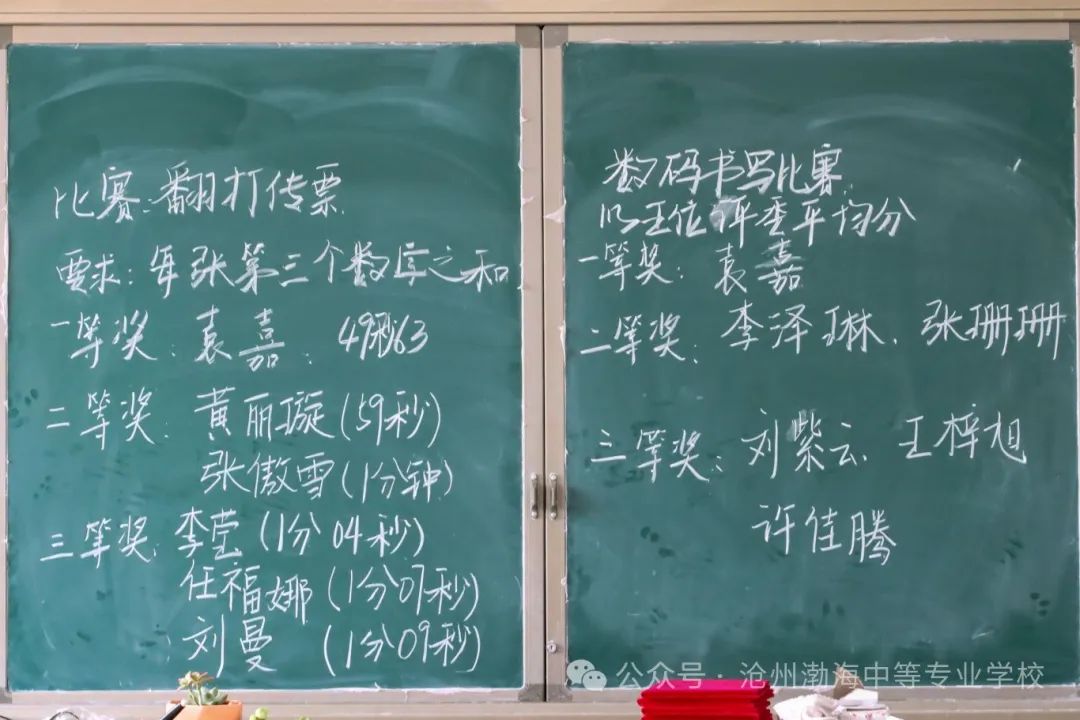 比赛:翻打传票
要求:每张第三个数字之和
一等奖:袁嘉:49秒63
二等奖:黄丽璇(59秒)
张傲雪(1分钟)
三等奖:李莹(1分04秒)
任福娜(1分07秒)
刘曼(1分09秒)
数码书写比赛
以五位评委平均分
一等奖:袁嘉
二等奖:李泽琳、张珊珊
三等奖:刘紫云、王梓旭
许佳腾
公众号·沧州渤海中等专业学校